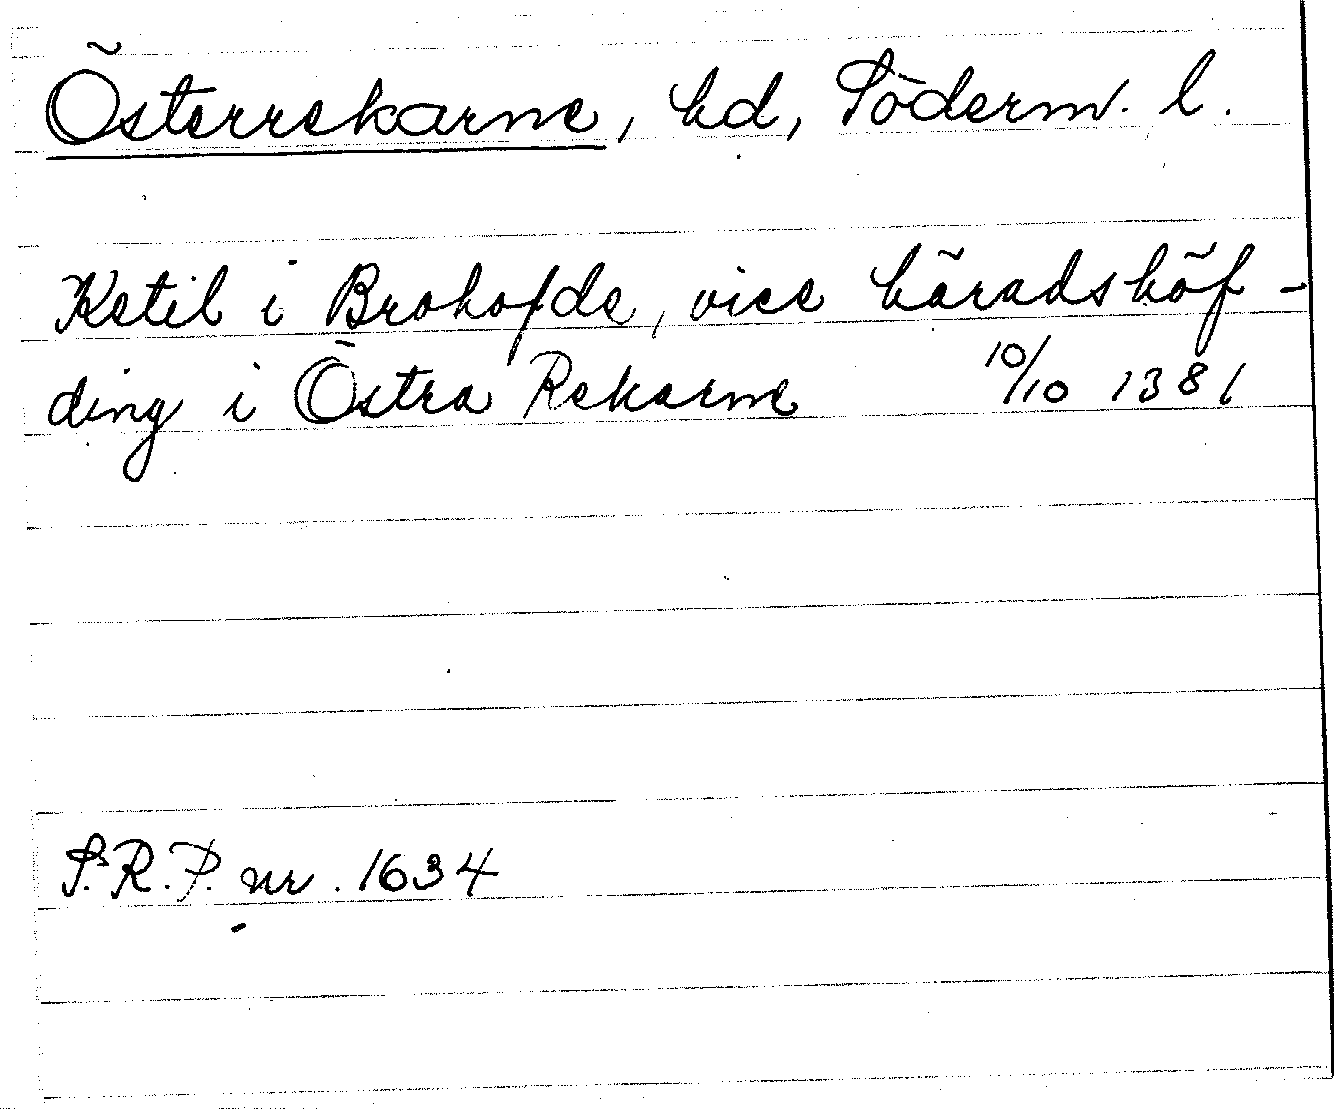 Österrekarne, hd, Söderm. l.
Ketil i Brohofde, vice häradshöf-
ding i Östra Rekarne 10/10 1381
S.R.P. nr. 1634